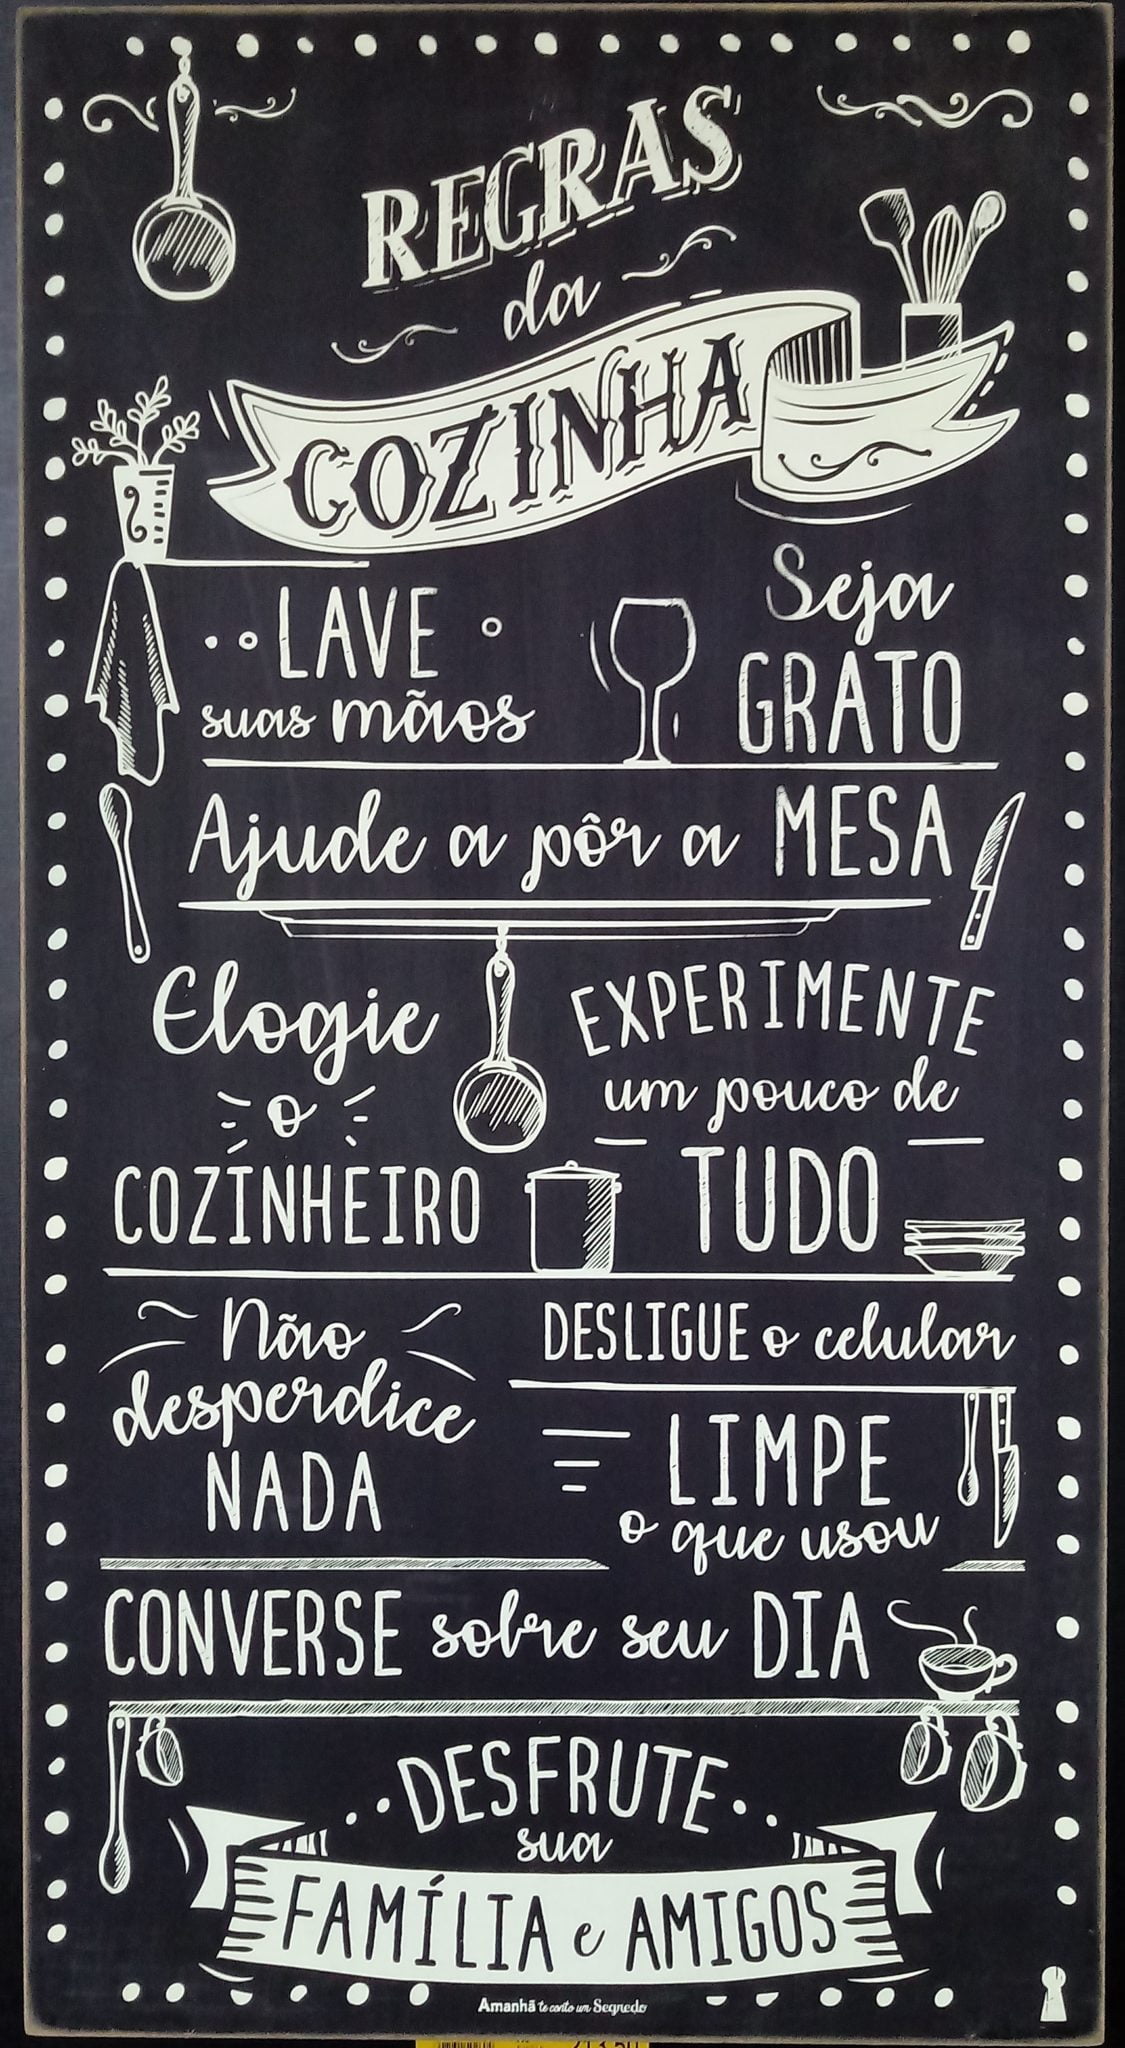 REGRAS
da
COZINHA
LAVE
suas mãos
Seja
GRATO
Ajude a pôr a MESA
Elogie
o
COZINHEIRO
EXPERIMENTE
um pouco de
TUDO
Não
desperdice
NADA
DESLIGUE o celular
LIMPE
o que usou
CONVERSE sobre seu DIA
DESFRUTE
sua
FAMÍLIA e AMIGOS
Amanhã te conto um Segredo